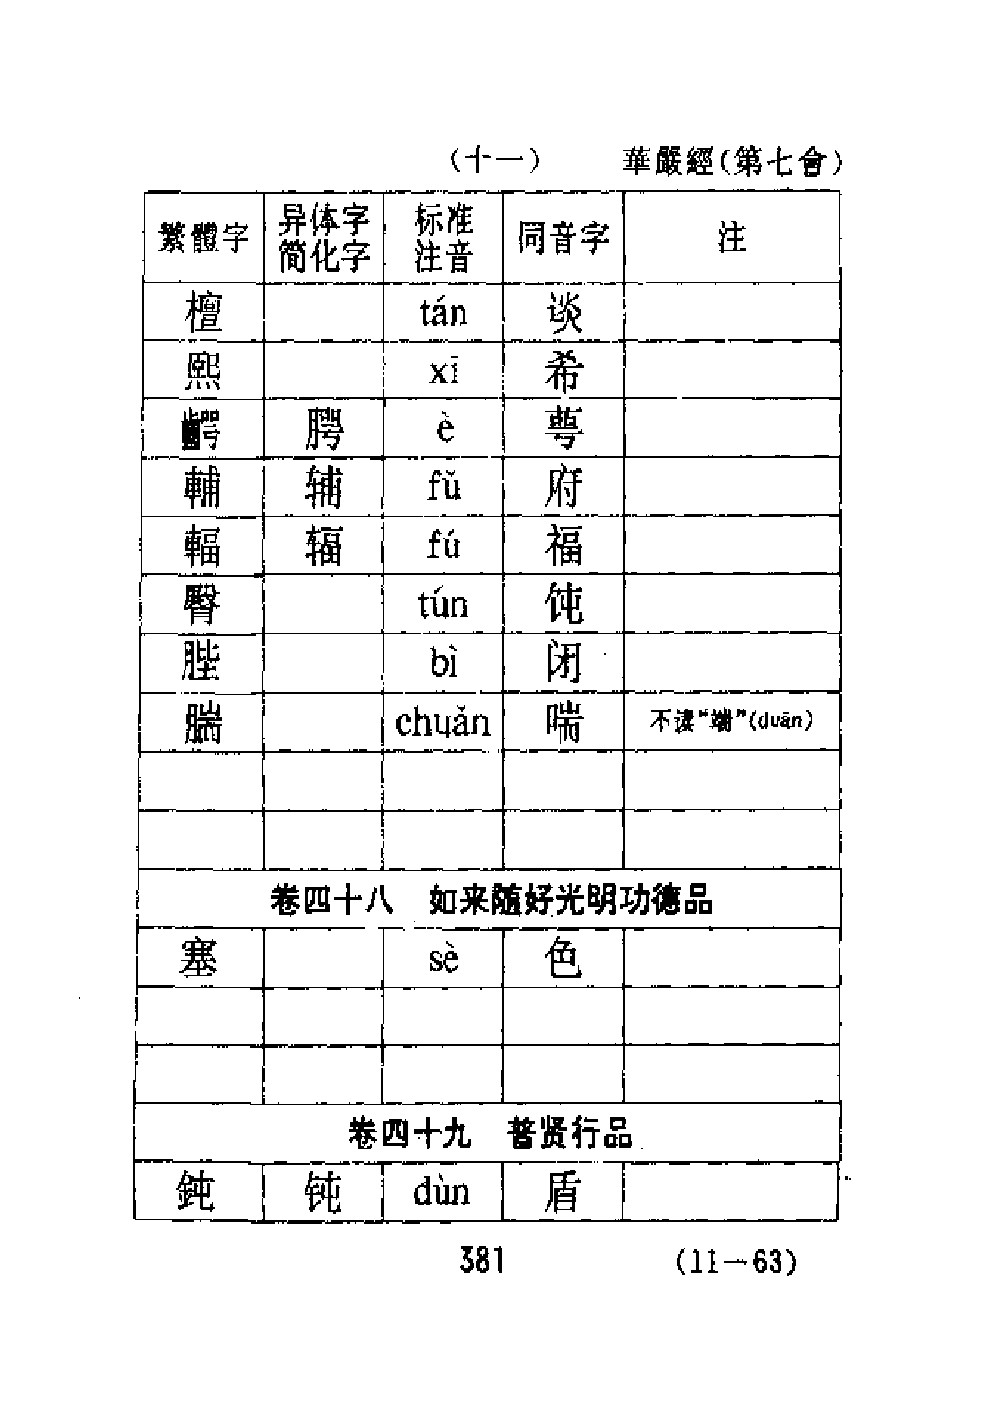 (十一) 華嚴經(第七會)
繁體字 异体字 简化字 标准注音 同音字 注
檀 tán 谈
熙 xī 希
齶 腭 è 萼
輔 辅 fǔ 府
輻 辐 fú 福
臀 tún 饨
髀 bì 闭
腨 chuǎn 喘 不读“端”(duān)
卷四十八 如来随好光明功德品
塞 sè 色
卷四十九 普贤行品
鈍 钝 dùn 盾
381 (11—63)